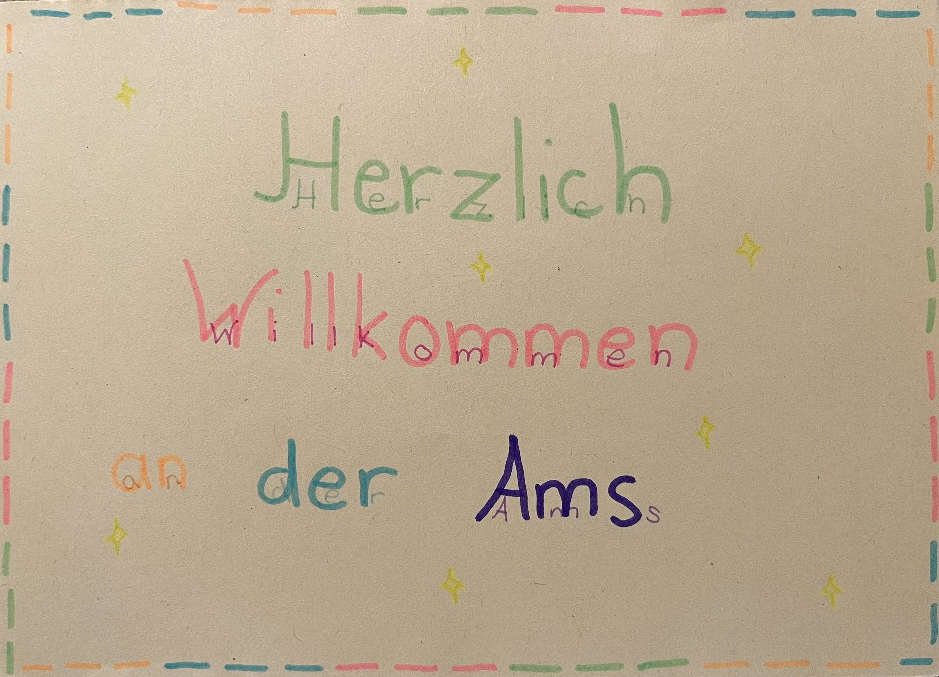 Herzlich
Willkommen
an der Ams